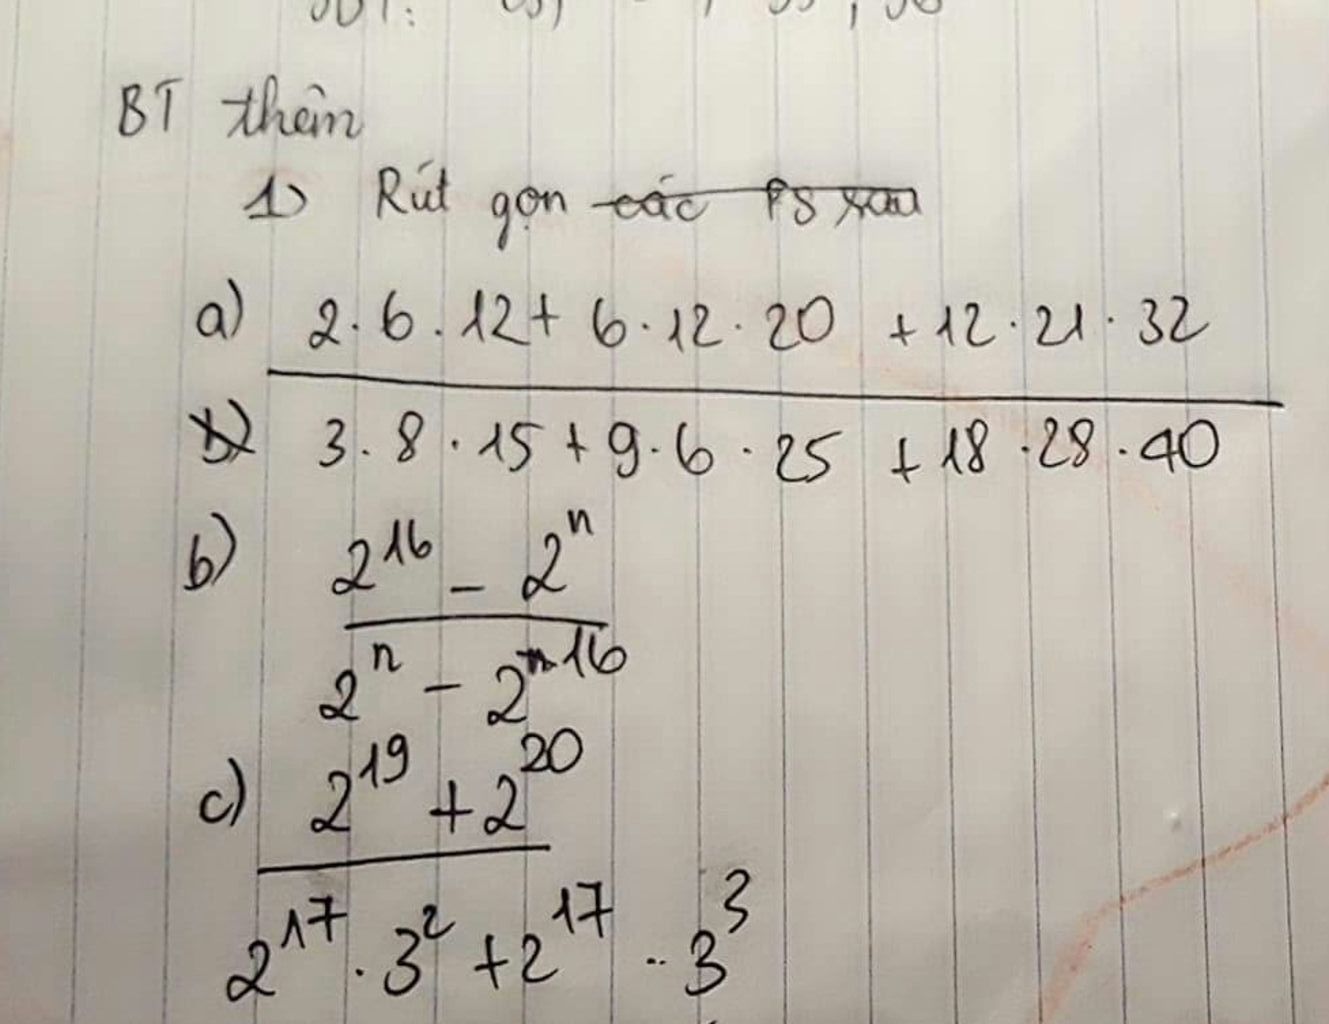 BT thêm
1) Rút gọn các PS sau
a) 2.6.12+ 6.12.20 + 12.21.32
b) 3.8.15 + 9.6.25 + 18.28.40
b) 2^16 - 2^n
2^n - 2^n-16
c) 2^19 + 2^20
2^17 . 3^2 + 2^17 .. 3^3